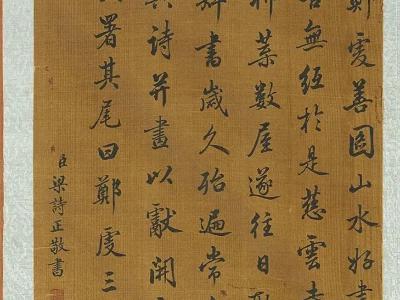 鄭虔善圖山水好書
苦無紙於是慈雲寺
柿葉數屋遂往日取
肄書歲久殆遍常
其詩并畫以獻開
署其尾曰鄭虔三
臣梁詩正敬書